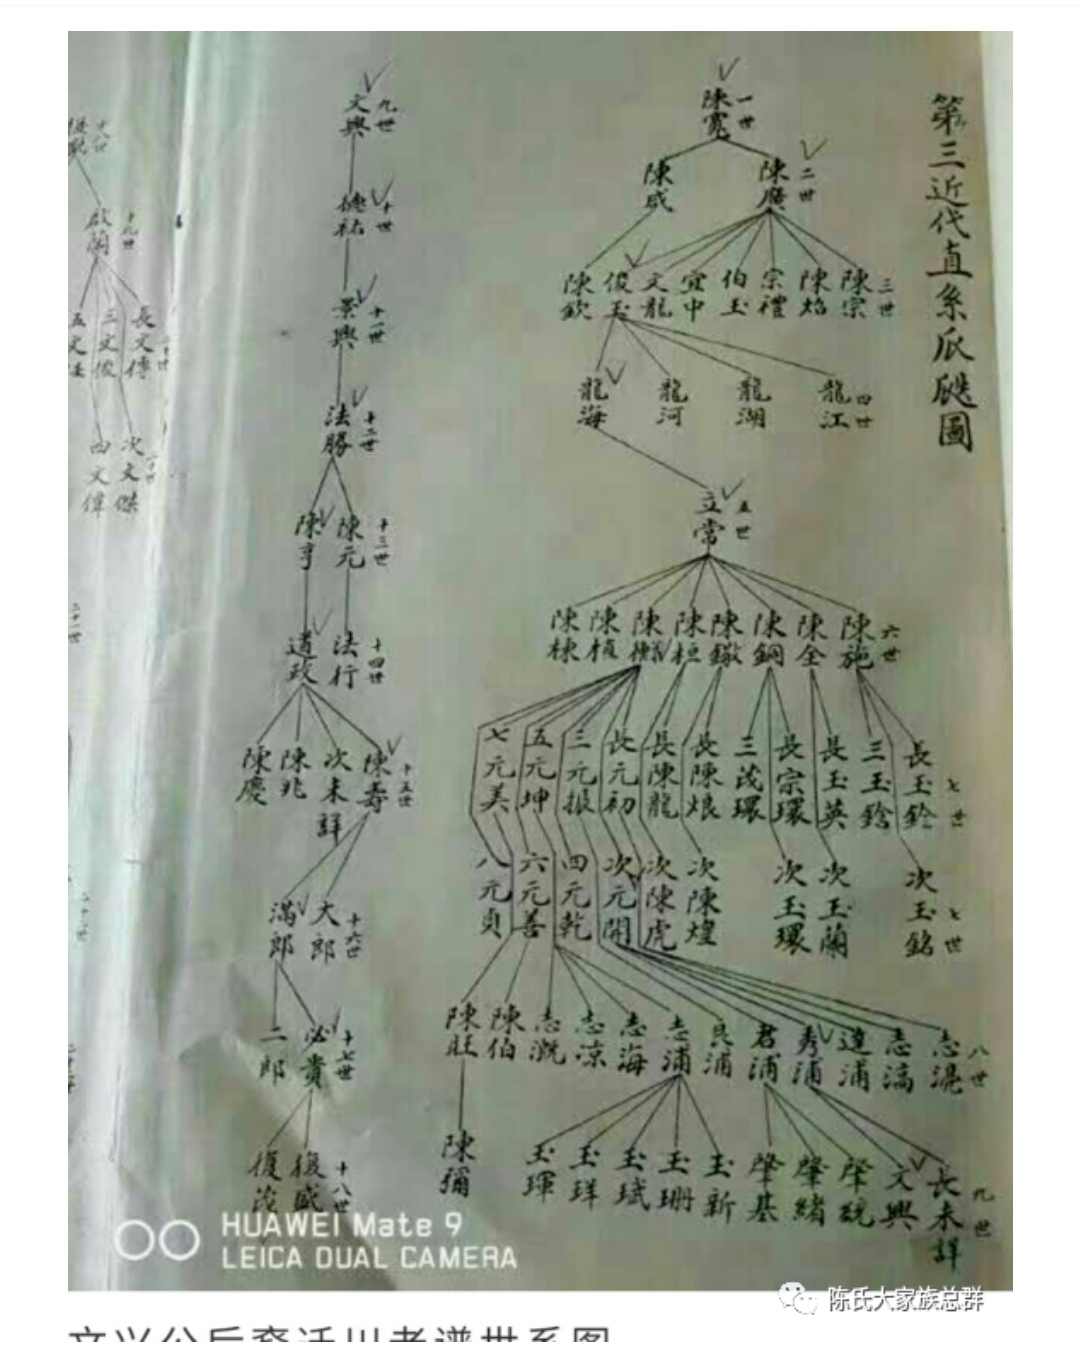 第三近代直系瓜瓞圖
一世
陳寬
二世
陳廣
陳咸
三世
陳宗
陳焰
宗禮
伯玉
宜中
文龍
俊玉
陳欽
四世
龍江
龍湖
龍河
龍海
五世
立常
六世
陳施
陳全
陳鋼
陳鏾
陳桓
陳衡
陳植
陳棟
七世
長玉銓
三玉鎗
長玉英
長宗環
三茂環
長陳烺
長陳龍
長元初
三元振
五元坤
七元美
七世
次玉銘
次玉蘭
次玉環
次陳煌
次陳虎
次元開
四元乾
六元善
八元貞
八世
志湜
志滈
達浦
秀浦
君浦
良浦
志浦
志海
志凉
志溉
陳伯
陳旺
九世
長未詳
文興
肇統
肇緒
肇基
玉新
玉珊
玉珷
玉珜
玉琿
陳彌
九世
文興
十世
德祐
十一世
景興
十二世
法勝
十三世
陳元
陳亨
十四世
法行
道政
十五世
陳壽
次未詳
陳兆
陳慶
十六世
大郎
滿郎
十七世
必貴
二郎
十八世
復盛
復茂
十八世
十九世
啟蘭
長文傳
三文俊
五文
次文傑
四文偉
二十一世
HUAWEI Mate 9
LEICA DUAL CAMERA
陈氏大家族总群
文兴公后裔迁川老谱世系图